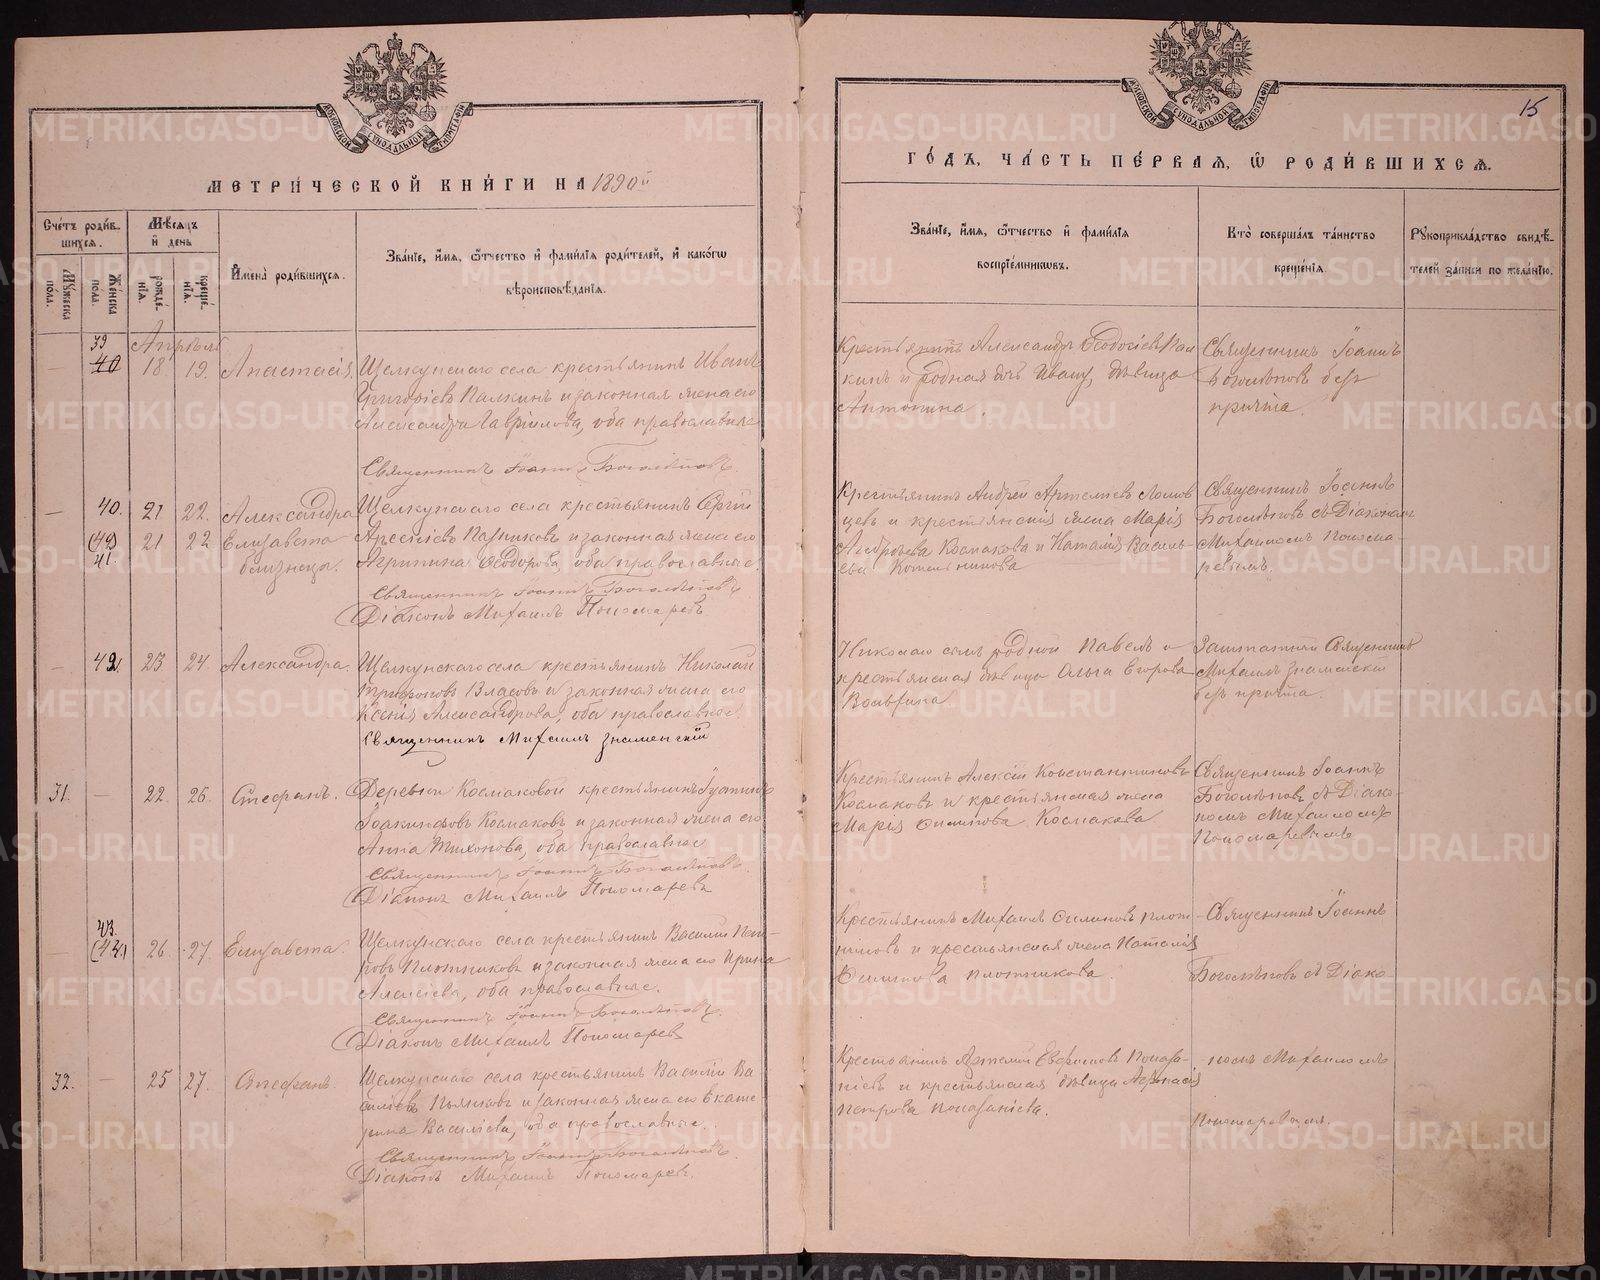 МЕТРИЧЕСКОЙ КНИГИ НА 1890й
ГОДЪ, ЧАСТЬ ПЕРВАЯ, Ѡ РОДИВШИХСЯ.
15
Счетъ родившихся.
Мужеска пола.
Женска пола.
Мѣсяцъ и день
рожденія.
крещенія.
Имена родившихся.
Званіе, имя, отчество и фамилія родителей, и какого вѣроисповѣданія.
Званіе, имя, отчество и фамилія воспріемниковъ.
Кто совершалъ таинство крещенія.
Рукоприкладство свидѣтелей записи по желанію.
Апрѣль
39
40
18
19.
Анастасія.
Щелкунскаго села крестьянинъ Иванъ
Григоріевъ Палкинъ и законная жена его
Александра Гавріилова, оба православные
Священникъ Іоаннъ Боголѣповъ.
Крестьянинъ Александръ Ѳеодосіевъ Пал
кинъ и родная дочь Ивану, дѣвица
Антонина.
Священникъ Іоаннъ
Боголѣповъ безъ
причта.
40.
21
22.
Александра
(42)
41.
21
22
Елизавета
близнецы.
Щелкунскаго села крестьянинъ Сергій
Арсеніевъ и законная жена его
Агрипина Ѳеодорова, оба православные.
Священникъ Іоаннъ Боголѣповъ
Діаконъ Михаилъ Пономаревъ
Крестьянинъ Андрей Артеміевъ
и крестьянскія жена Марія
Андреева Космакова и Наталія Василь-
ева Котельникова
Священникъ Іоаннъ
Боголѣповъ съ Діаконом
Михаиломъ Понома-
ревымъ.
42
23
24.
Александра.
Щелкунскаго села крестьянинъ Николай
Трифоновъ Власовъ и законная жена его
Ксенія Александрова, оба православные
Священникъ Михаилъ Знаменскій
Николаю сынъ родной Павелъ и
крестьянская дѣвица Ольга Егорова
Заштатный Священникъ
Михаилъ Знаменскій
безъ причта.
31.
22.
25.
Стефанъ.
Деревни Космаковой крестьянинъ Іустинъ
Іоакимовъ Космаковъ и законная жена его
Анна Тихонова, оба православные
Священникъ Іоаннъ Боголѣповъ.
Діаконъ Михаилъ Пономаревъ
Крестьянинъ Алексій Константиновъ
Космаковъ и крестьянская жена
Марія Силинова Космакова
Священникъ Іоаннъ
Боголѣповъ съ Діако-
номъ Михаиломъ
Пономаревымъ
43.
(44.)
26.
27.
Елизавета.
Щелкунскаго села крестьянинъ Василій Пет-
ровъ Плотниковъ и законная жена его Ирина
Алексіева, оба православные.
Священникъ Іоаннъ Боголѣповъ.
Діаконъ Михаилъ Пономаревъ
Крестьянинъ Михаилъ Силиновъ Плот-
никовъ и крестьянская жена Наталія
Силинова Плотникова.
Священникъ Іоаннъ
Боголѣповъ съ Діако-
32.
25
27.
Стефанъ
Щелкунскаго села крестьянинъ Василій Ва-
силіевъ Пьянковъ и законная жена его Екате-
рина Василіева, оба православные.
Священникъ Іоаннъ Боголѣповъ.
Діаконъ Михаилъ Пономаревъ.
Крестьянинъ Артемій Евфимовъ
и крестьянская дѣвица Афанасія
Петрова
номъ Михаиломъ
Пономаревымъ.
METRIKI.GASO-URAL.RU